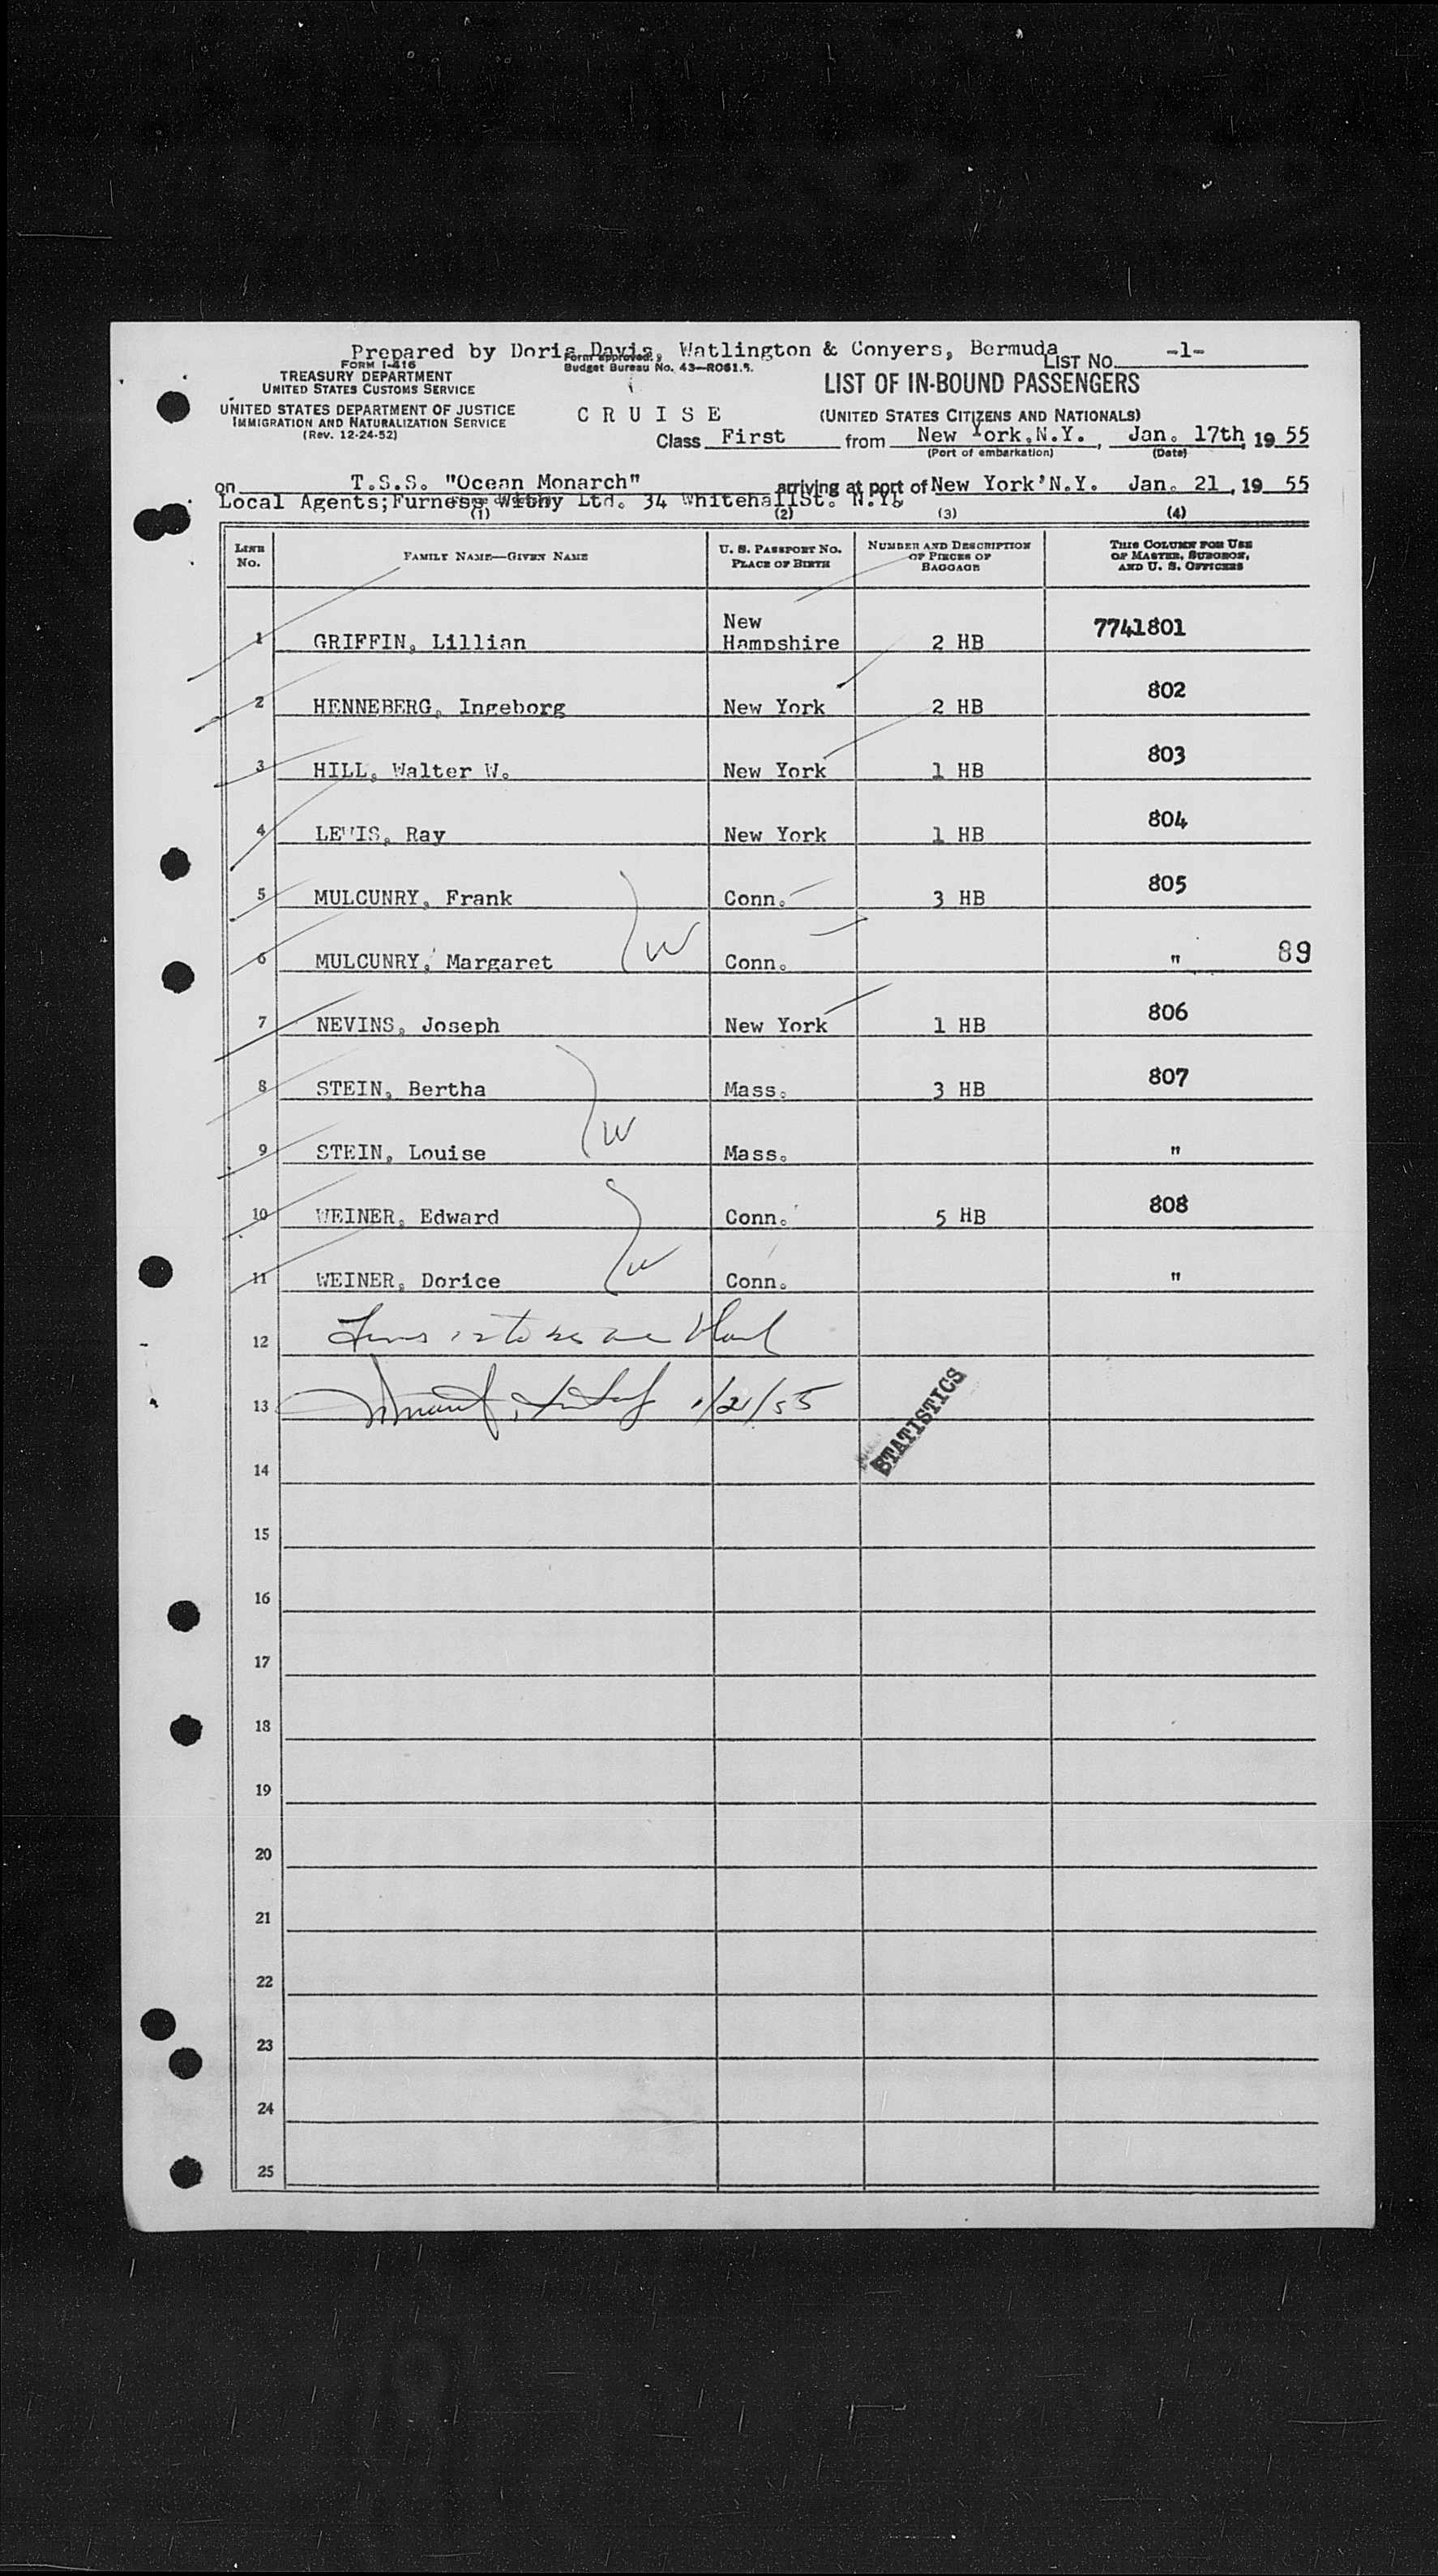 Prepared by Doris Davis, Watlington & Conyers, Bermuda
LIST NO. -1-
FORM I-416
TREASURY DEPARTMENT
UNITED STATES CUSTOMS SERVICE
Form approved.
Budget Bureau No. 43—R061.5.
LIST OF IN-BOUND PASSENGERS
UNITED STATES DEPARTMENT OF JUSTICE
IMMIGRATION AND NATURALIZATION SERVICE
(Rev. 12-24-52)
C R U I S E
(UNITED STATES CITIZENS AND NATIONALS)
Class First from New York, N.Y., Jan. 17th, 19 55
(Port of embarkation) (Date)
on T.S.S. "Ocean Monarch" arriving at port of New York'N.Y. Jan. 21, 19 55
Local Agents;Furness Withy Ltd. 34 Whitehall St. N.Y.
(1) (2) (3) (4)
LINE NO.
FAMILY NAME—GIVEN NAME
U. S. PASSPORT NO.
PLACE OF BIRTH
NUMBER AND DESCRIPTION
OF PIECES OF
BAGGAGE
THIS COLUMN FOR USE
OF MASTER, SURGEON,
AND U. S. OFFICERS
1 GRIFFIN, Lillian New Hampshire 2 HB 7741801
2 HENNEBERG, Ingeborg New York 2 HB 802
3 HILL, Walter W. New York 1 HB 803
4 LEWIS, Ray New York 1 HB 804
5 MULCUNRY, Frank Conn. 3 HB 805
6 MULCUNRY, Margaret W Conn. " 89
7 NEVINS, Joseph New York 1 HB 806
8 STEIN, Bertha Mass. 3 HB 807
9 STEIN, Louise W Mass. "
10 WEINER, Edward Conn. 5 HB 808
11 WEINER, Dorice W Conn. "
12
13 1/21/55
STATISTICS
14
15
16
17
18
19
20
21
22
23
24
25